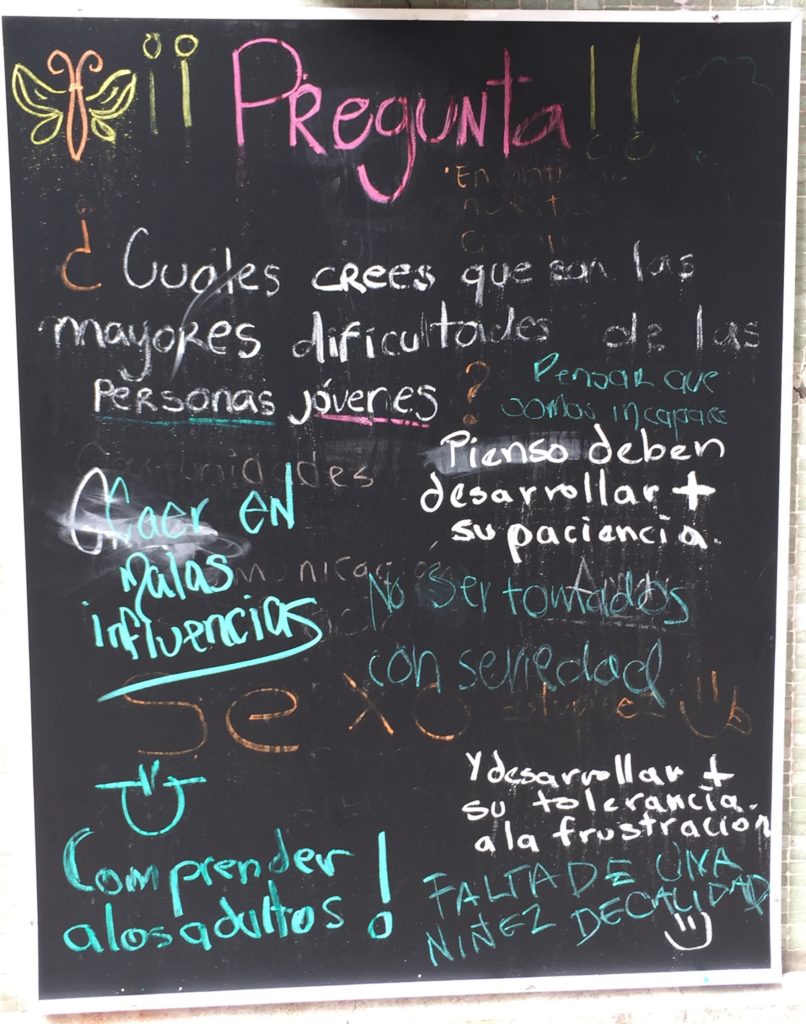 ¡¡ Pregunta !!
¿Cuales crees que son las
mayores dificultades de las
personas jóvenes?
Pensar que
somos incapace
Pienso deben
desarrollar +
su paciencia.
Caer en
malas
influencias
No ser tomados
con seriedad
Sexo
Y desarrollar +
su tolerancia.
a la frustración
Comprender
a los adultos!
FALTA DE UNA
NIÑEZ DE CALIDAD